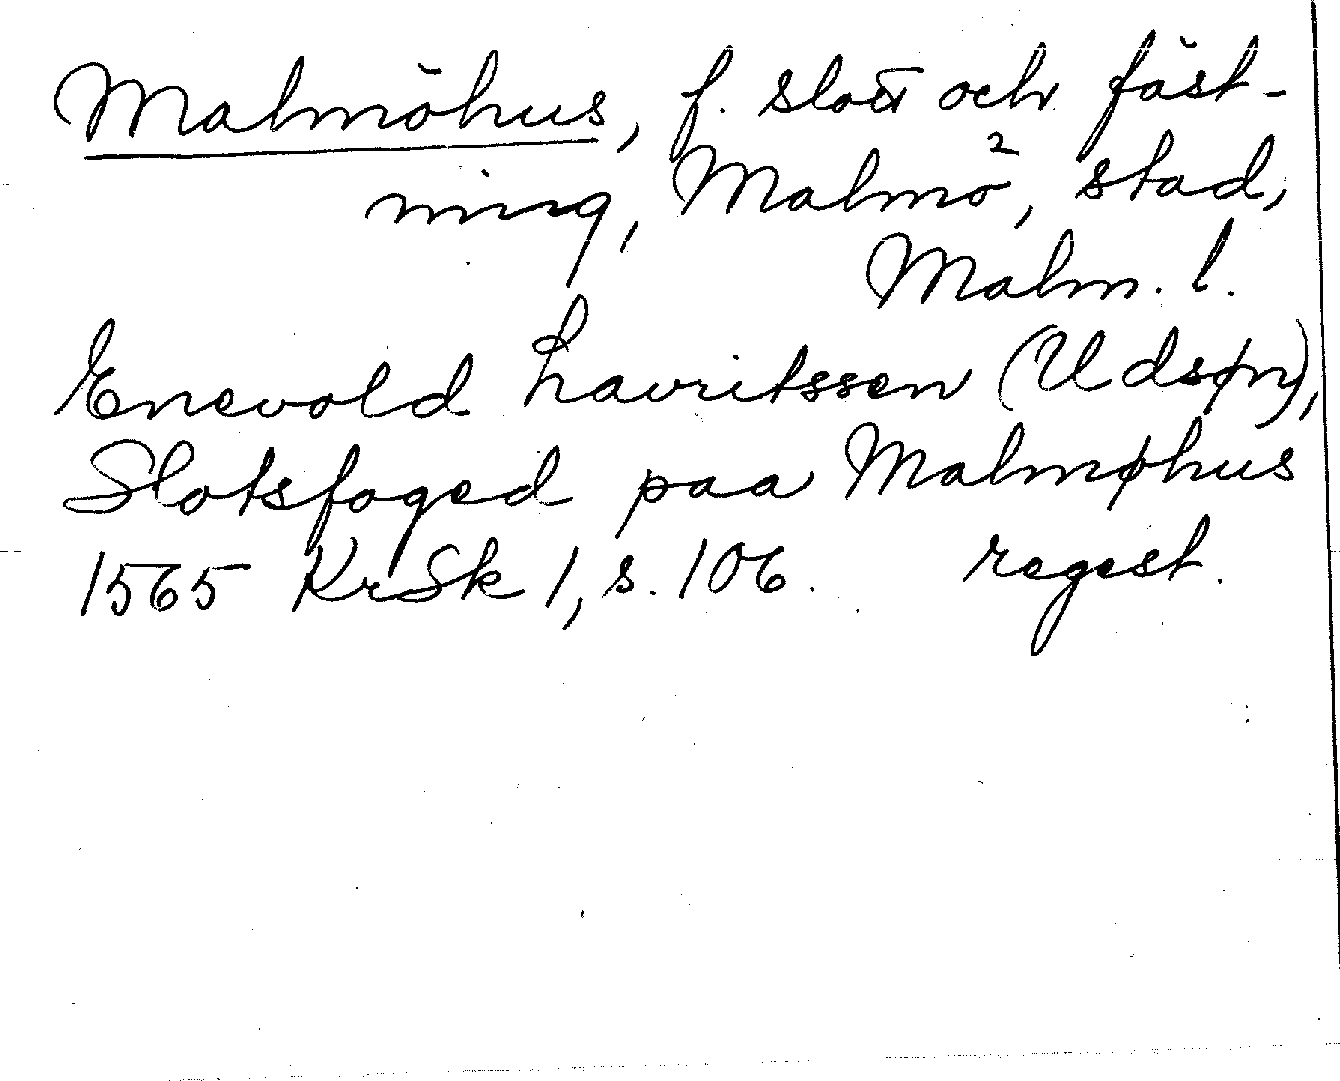 Malmöhus, f. slott och fäst-
ning, Malmö², stad,
Malm. l.
Enevold Lavritssen (Udsøn),
Slotsfoged paa Malmøhus
1565 KrSk 1, s. 106. regest.